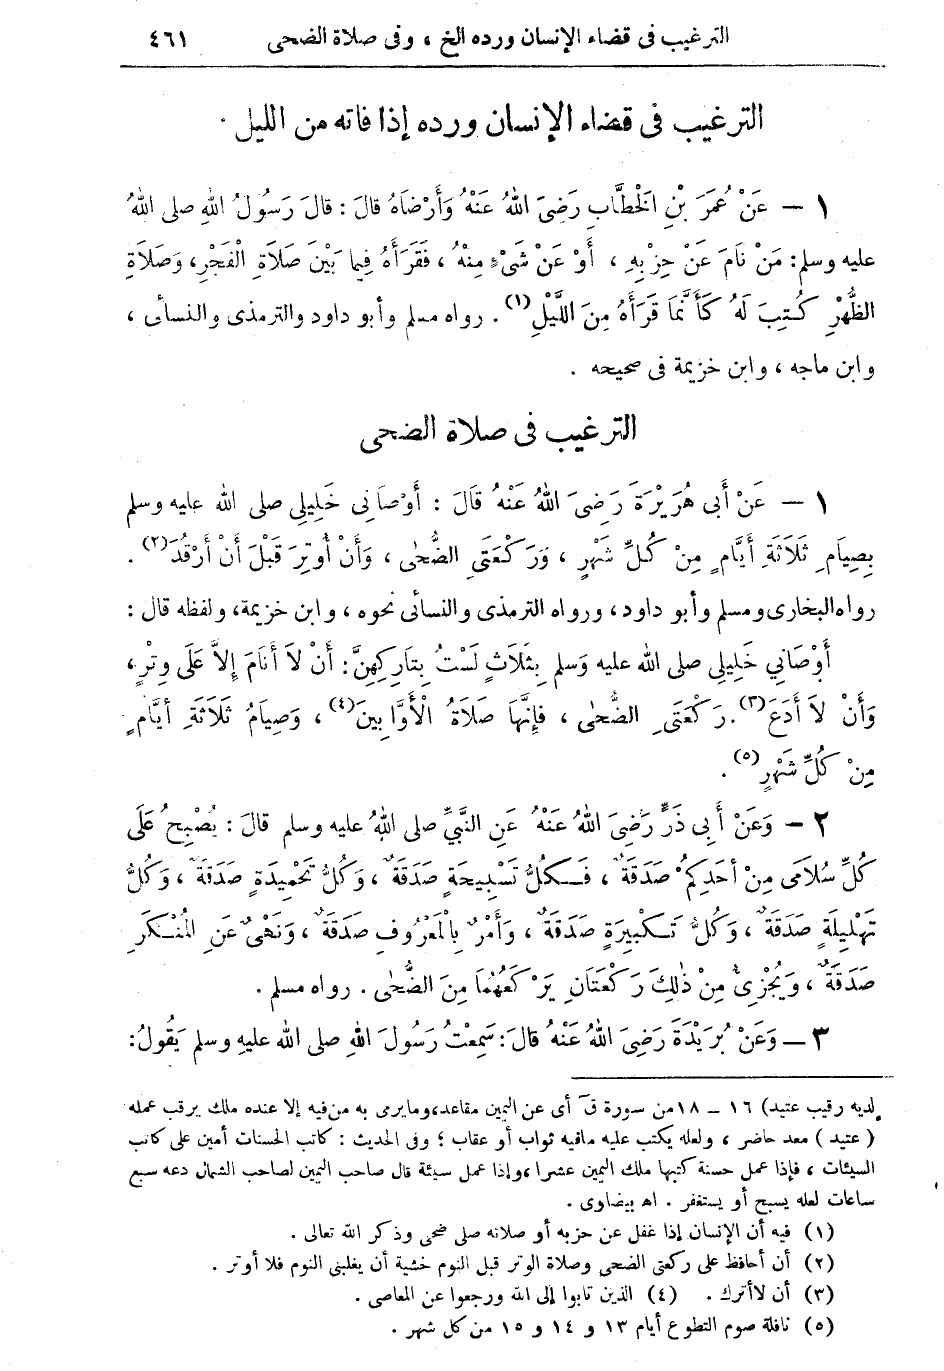 الترغيب فى قضاء الإنسان ورده الخ ، وفى صلاة الضحى ٤٦١
الترغيب فى قضاء الإنسان ورده إذا فاته من الليل .
١ – عَنْ عُمَرَ بْنِ الْخَطَّابِ رَضِىَ اللهُ عَنْهُ وَأَرْضَاهُ قالَ : قالَ رَسُولُ اللهِ صلى اللهُ
عليه وسلم : مَنْ نَامَ عَنْ حِزْبِهِ ، أَوْ عَنْ شَىْءٍ مِنْهُ ، فَقَرَأَهُ فِيمَا بَيْنَ صَلَاةِ الْفَجْرِ ، وَصَلَاةِ
الظُّهْرِ كُتِبَ لَهُ كَأَنَّمَا قَرَأَهُ مِنَ اللَّيْلِ (١) . رواه مسلم وأبو داود والترمذى والنسائى ،
وابن ماجه ، وابن خزيمة فى صحيحه .
الترغيب فى صلاة الضحى
١ – عَنْ أَبِى هُرَيْرَةَ رَضِىَ اللهُ عَنْهُ قَالَ : أَوْصَانِى خَلِيلِى صلى الله عليه وسلم
بِصِيَامِ ثَلَاثَةِ أَيَّامٍ مِنْ كُلِّ شَهْرٍ ، وَرَكْعَتَىِ الضُّحٰى ، وَأَنْ أُوتِرَ قَبْلَ أَنْ أَرْقُدَ (٢) .
رواه البخارى ومسلم وأبو داود ، ورواه الترمذى والنسائى نحوه ، وابن خزيمة ، ولفظه قال :
أَوْصَانِي خَلِيلِى صلى الله عليه وَسلم بِثَلَاثٍ لَسْتُ بِتَارِكِهِنَّ : أَنْ لَا أَنَامَ إِلاَّ عَلَى وِتْرٍ ،
وَأَنْ لَا أَدَعَ (٣) رَكْعَتَىِ الضُّحٰى ، فَإِنَّهَا صَلَاةُ الْأَوَّابِينَ (٤) ، وَصِيَامُ ثَلَاثَةِ أَيَّامٍ
مِنْ كُلِّ شَهْرٍ (٥) .
٢ – وَعَنْ أَبِى ذَرٍّ رَضِىَ اللهُ عَنْهُ عَنِ النَّبِيِّ صلى اللهُ عليه وسلم قالَ : يُصْبِحُ عَلَى
كُلِّ سُلَامَى مِنْ أَحَدِكُمْ صَدَقَةٌ ، فَكُلُّ تَسْبِيحَةٍ صَدَقَةٌ ، وَكُلُّ تَحْمِيدَةٍ صَدَقَةٌ ، وَكُلُّ
تَهْلِيلَةٍ صَدَقَةٌ ، وَكُلُّ تَكْبِيرَةٍ صَدَقَةٌ ، وَأَمْرٌ بِالْمَعْرُوفِ صَدَقَةٌ ، وَنَهْىٌ عَنِ الْمُنْكَرِ
صَدَقَةٌ ، وَيُجْزِئُ مِنْ ذٰلِكَ رَكْعَتَانِ يَرْكَعُهُمَا مِنَ الضُّحٰى . رواه مسلم .
٣ – وَعَنْ بُرَيْدَةَ رَضِىَ اللهُ عَنْهُ قالَ : سَمِعْتُ رَسُولَ اللهِ صلى الله عليهِ وسلم يَقُولُ :
لديه رقيب عتيد) ١٦ – ١٨ من سورة قۤ أى عن اليمين مقاعد، ومايرمى به من فيه إلا عنده ملك يرقب عمله
( عتيد ) معد حاضر ، ولعله يكتب عليه مافيه ثواب أو عقاب ؛ وفى الحديث : كاتب الحسنات أمين على كاتب
السيئات ، فإذا عمل حسنة كتبها ملك اليمين عشرا ، وإذا عمل سيئة قال صاحب اليمين لصاحب الشمال دعه سبع
ساعات لعله يسبح أو يستغفر . اه بيضاوى .
(١) فيه أن الإنسان إذا غفل عن حزبه أو صلاته صلى ضحى وذكر الله تعالى .
(٢) أن أحافظ على ركعتى الضحى وصلاة الوتر قبل النوم خشية أن يغلبنى النوم فلا أوتر .
(٣) أن لا أترك . (٤) الذين تابوا إلى الله ورجعوا عن المعاصى .
(٥) نافلة صوم التطوع أيام ١٣ و ١٤ و ١٥ من كل شهر .